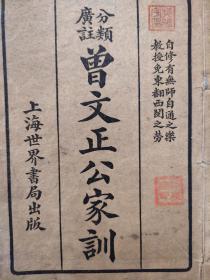 自修有無師自通之樂
教授免東翻西閱之勞
分類
廣註
曾文正公家訓
上海世界書局出版